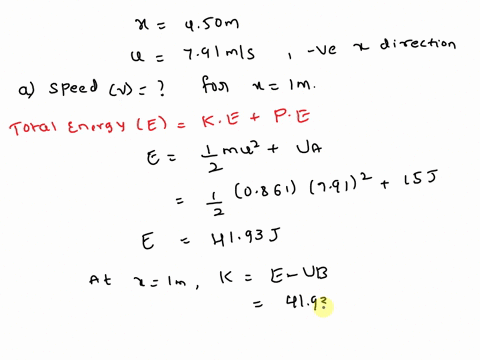 x = 4.50m
u = 7.91 m/s , -ve x direction
a) speed (v) = ? for x = 1m.
Total Energy (E) = K.E + P.E
E = 1/2 mu² + UA
= 1/2 (0.861) (7.91)² + 15J
E = 41.93 J
At x = 1m, K = E - UB
= 41.93